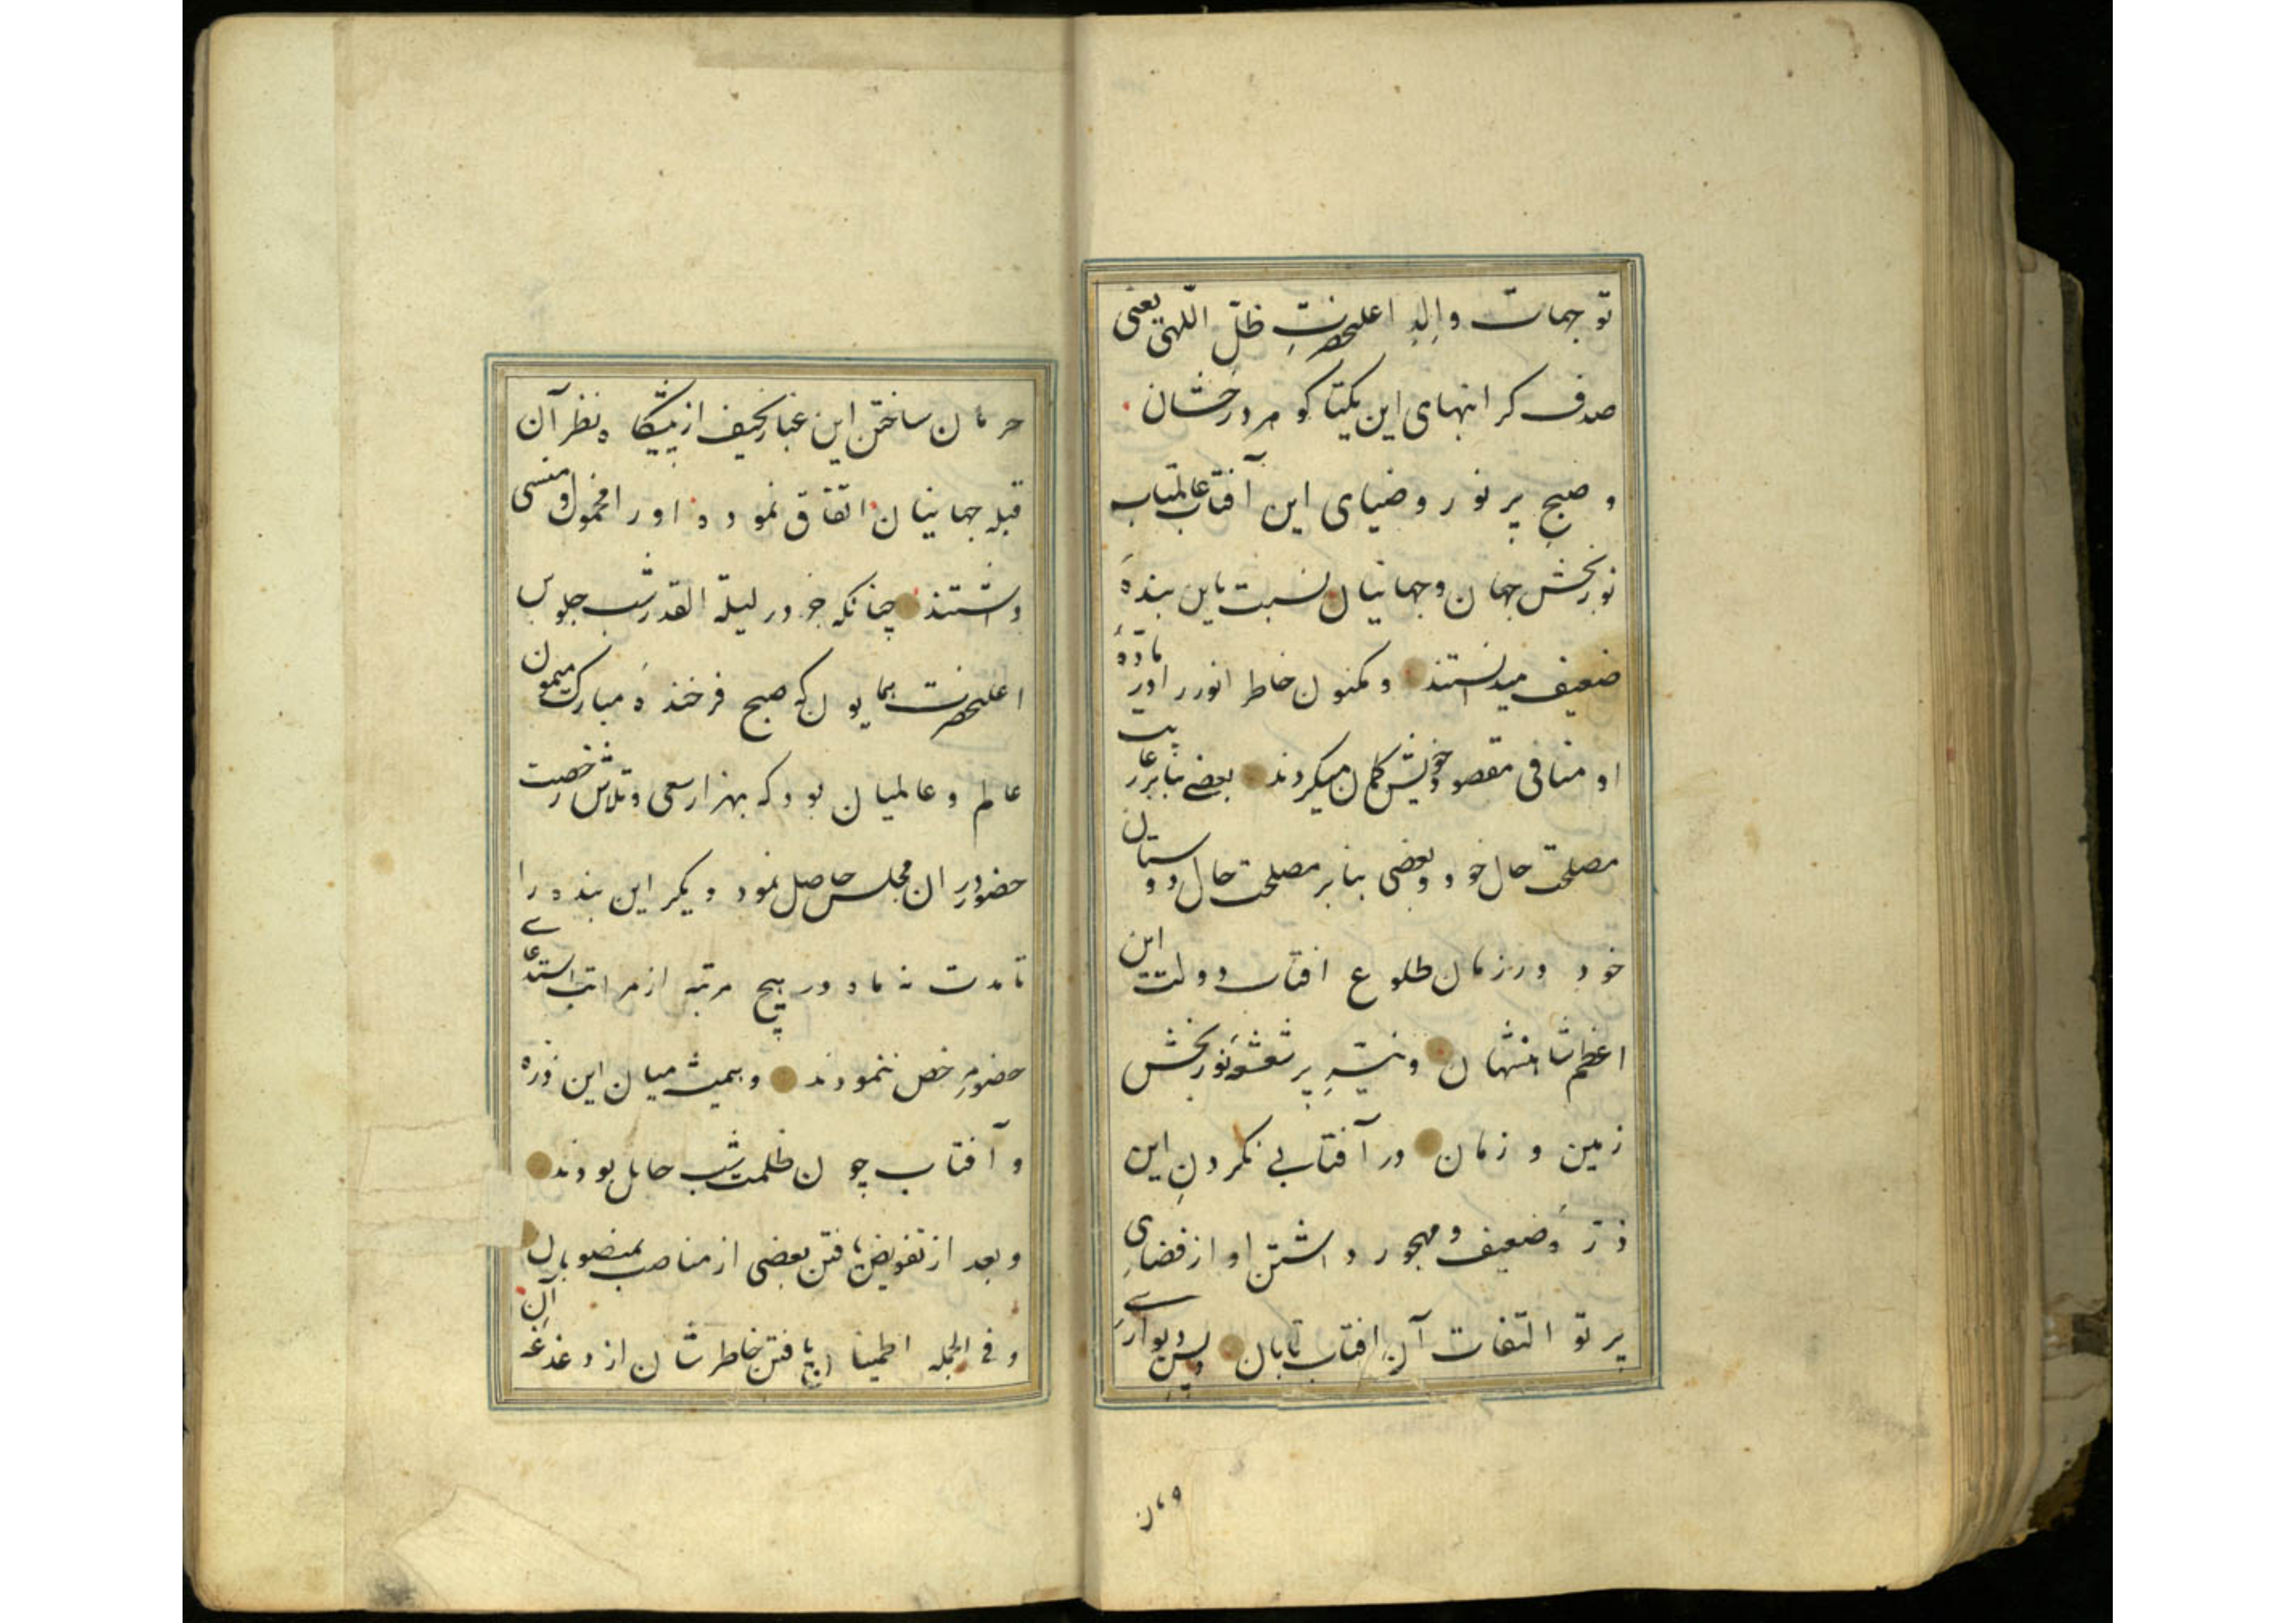 توجهات والدِ اعلیحضرتِ ظلّ اللّهی یعنی
صدف کرانبهای این یکتا کوهر درخشان
و صبح پر نور و ضیای این آفتاب عالمتاب
نوربخش جهان و جهانیان نسبت باین بندهٔ
ضعیف میدانستند و مکنون خاطر انور را در مادهٔ
او منافی مقصود خویش کمان میکردند بعضی بنابر رعایت
مصلحت حال خود و بعضی بنابر مصلحت حال دوستان
خود در زمان طلوع افتاب دولت این
اعظم شاهنشهان و نیّرِ پر شعشعهٔ نوربخش
زمین و زمان در آفتابی نکردنِ این
ذرّهٔ ضعیف و مهجور داشتن او از فضای
پرتو التفات آن افتاب تابان و پس دیوارِ
و مان
حرمان ساختن این غبار نحیف از پیشکاه نظر آن
قبله جهانیان اتفاق نموده او را مخمول و منسی
داشتند چنانکه خود در لیلة القدر شب جلوس
اعلیحضرت همایون که صبح فرخندهٔ مبارک میمون
عالم و عالمیان بود که بهزار سعی و تلاش رخصت
حضور در ان مجلس حاصل نمود دیکر این بنده را
تا مدت نه ماه در هیچ مرتبه از مراتب استدعای
حضور مرخص ننمودند و همیشه میان این ذره
و آفتاب چون ظلمت شب حایل بودند
و بعد از تفویض یافتن بعضی از مناصب بمنصوبان
و فی الجمله اطمینان یافتن خاطر شان از دغدغه آن